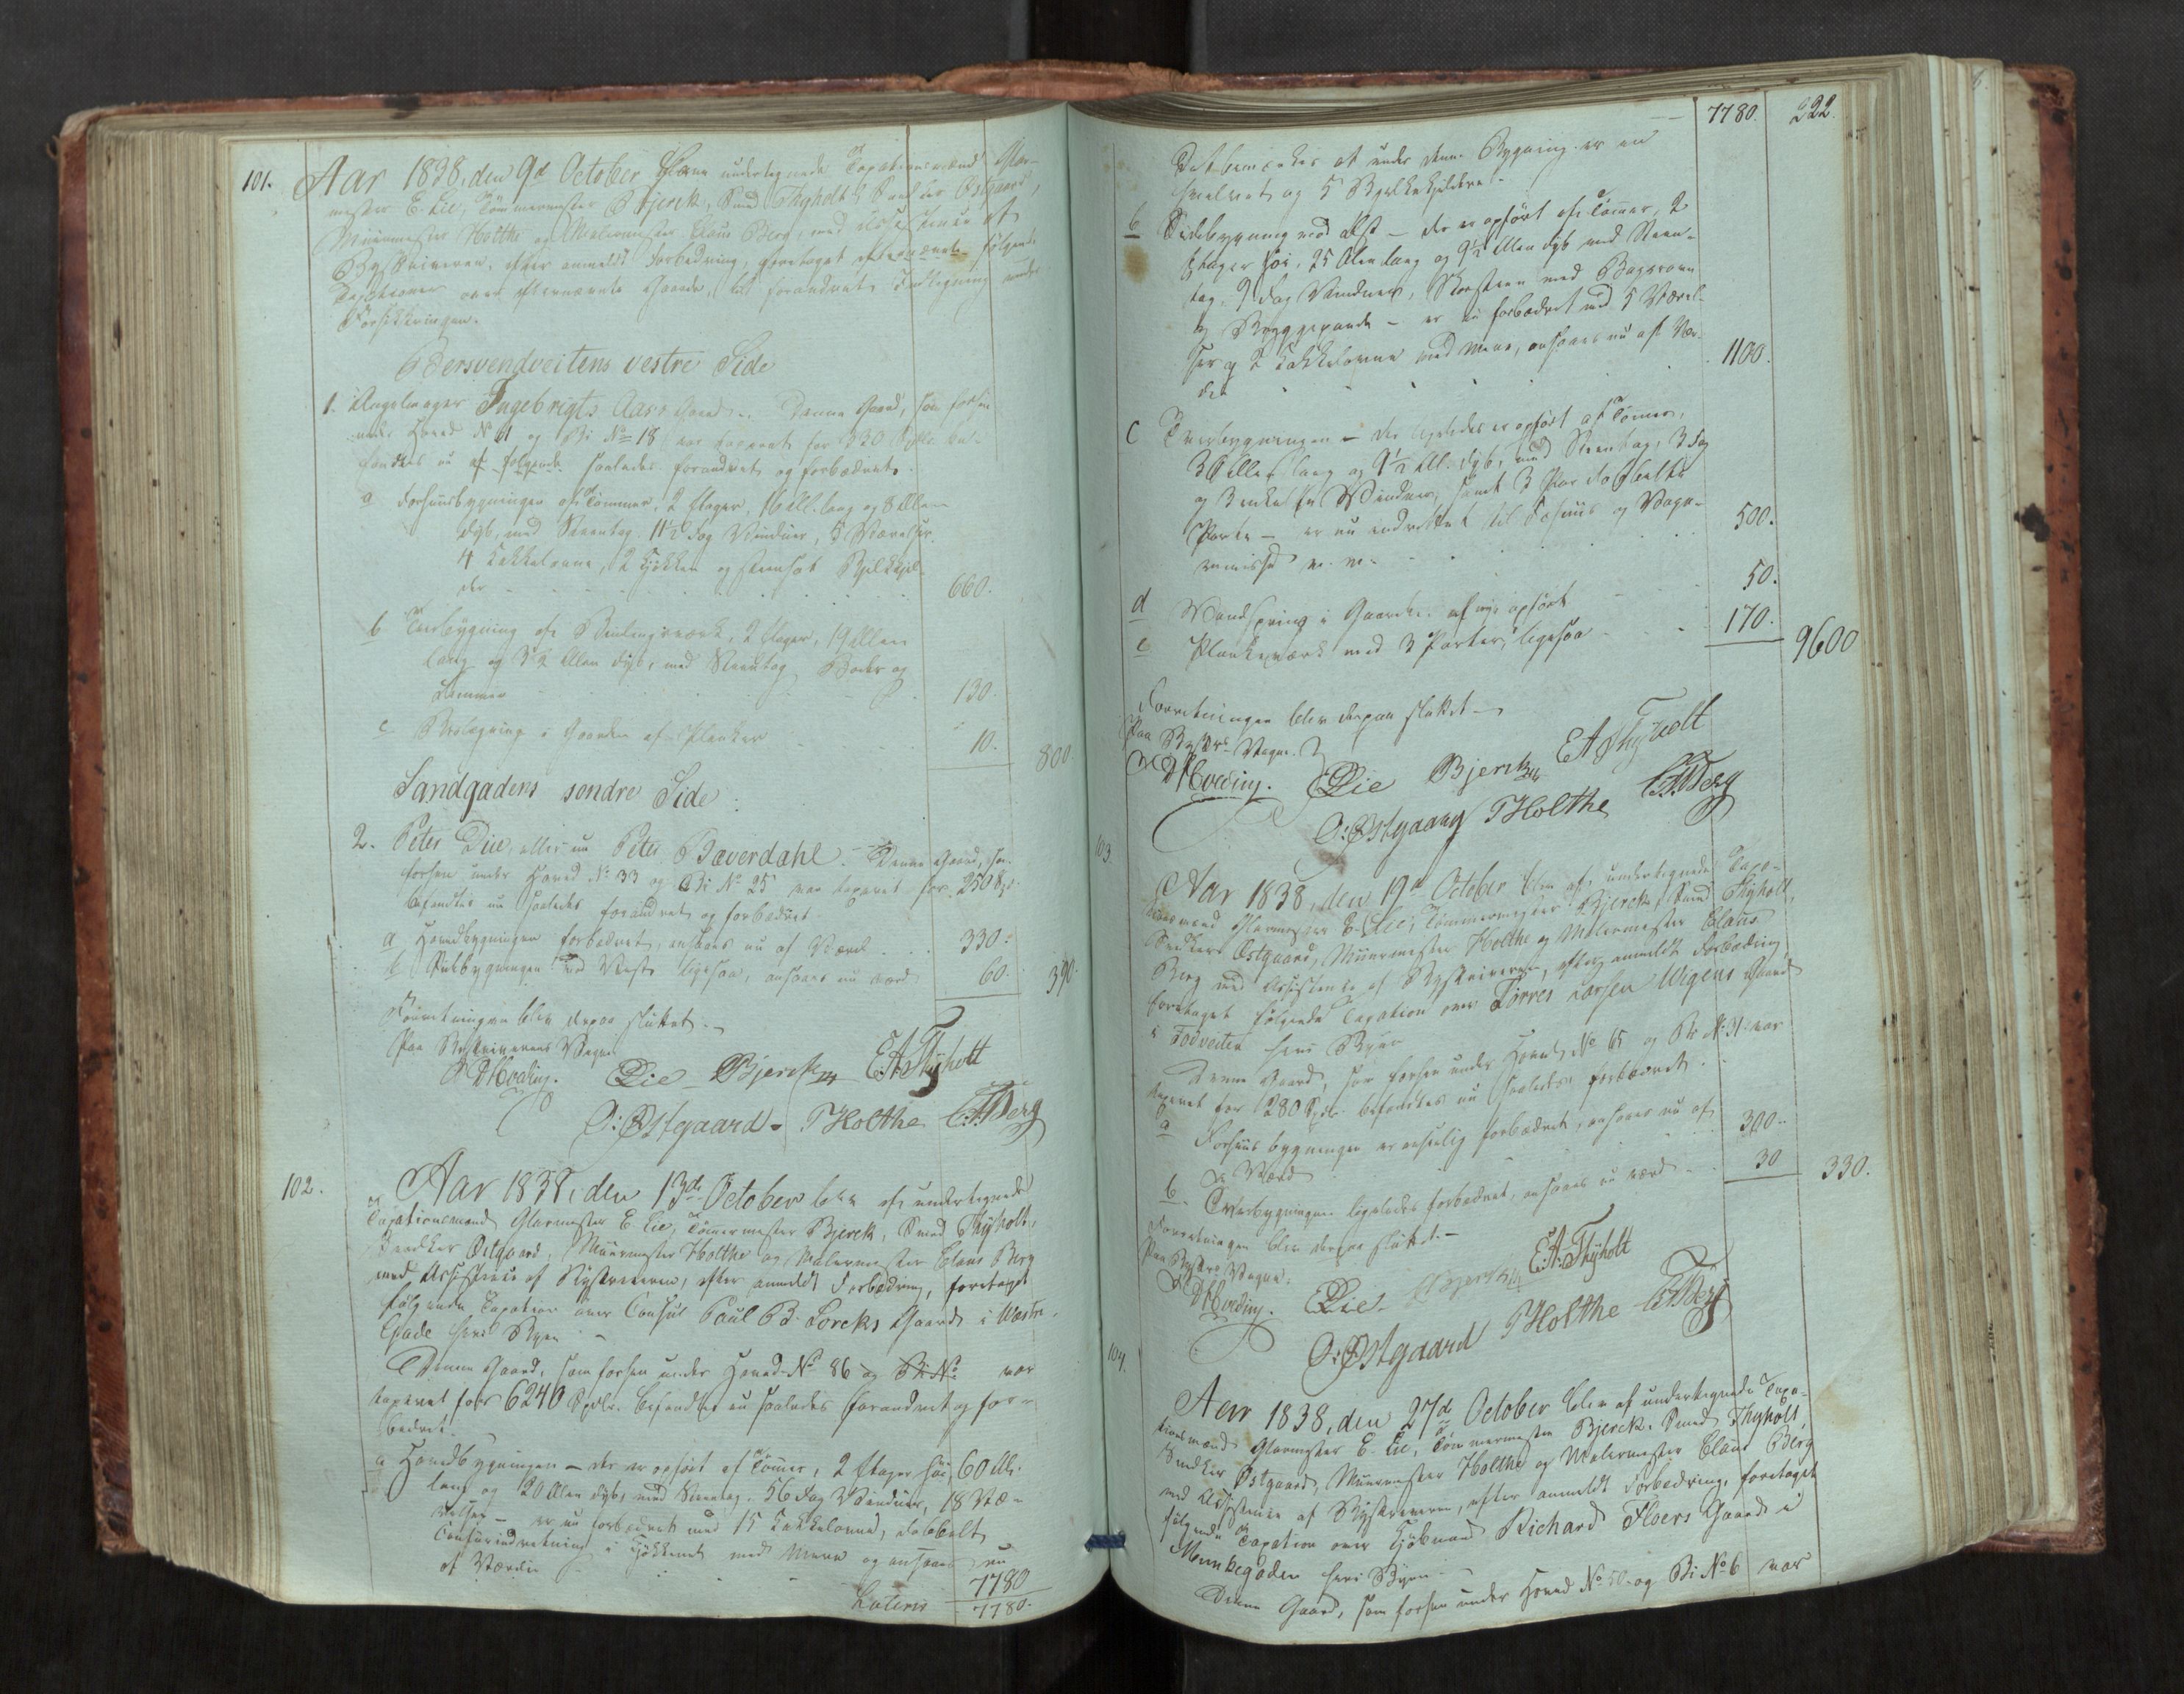 101. Aar 1838, den 9de October bleve undertegnede Taxationsmænd Glar-
mester E. Lie, Tömmermester Bjerck, Smed Thyholt, Snedker Östgaard,
Muurmester Holthe og Malermester Claus Berg, med Assistence af
Byskriveren, efter anmeldt Forbedring, foretaget efternævnte følgende
Taxationer over efternævnte Gaarde, til forandret Indtegning under
Forsikkringen.
Pedersvendveitens vestre Side
1. Ingebrigts Aass Gaard. Denne Gaard, som forhen
under Hoved No 61 og Bi No 18 var taxeret for 330 Spdlr. be-
fandtes nu at følgende saaledes forandret og forbedret.
a Forhuusbygningen af Tömmer, 2 Etager, 16 All. lang og 8 Allen
dyb, med Steentag. 11½ Fag Vinduer, 5 Værelser,
4 Kakkelovne, 2 Kjökken og steensat Bjelkekjel-
der 660.
b Tverbygning af Bindingsværk, 2 Etager, 19 Allen
lang og 3½ Allen dyb, med Steentag Boder og
Kammer 130.
c Brolægning i Gaarden af Planker 10. 800
Sandgadens söndre Side
2. Peter Due, eller nu Peter Bæverdahl. Denne Gaard, som
forhen under Hoved No 33 og Bi No 25 var taxeret for 250 Spd.
befandtes nu saaledes forandret og forbedret.
a Hovedbygningen forbedret, ansees nu af Værd 330.
b Sidebygningen mod Vest ligesaa, ansees nu værd 60. 390.
Forretningen blev derpaa sluttet.
Paa Byskriverens Vegne
Hveding. ELie Bjerck EAThyholt
O: Östgaard THolthe CABerg
102. Aar 1838, den 13de October blev af undertegnede
Taxationsmænd Glarmester E. Lie, Tömmermester Bjerck, Smed Thyholt,
Snedker Östgaard, Muurmester Holthe og Malermester Claus Berg
med Assistence af Byskriveren, efter anmeldt Forbedring, foretaget
følgende Taxation over Consul Paul B. Lorcks Gaard i Vestre
Gade heri Byen
Denne Gaard, som forhen under Hoved No 86 og Bi No var
taxeret for 6240 Spdlr. befandtes nu saaledes forandret og for-
bedret.
a Hovedbygningen – der er opført af Tömmer, 2 Etager høi, 60 All.
lang og 20 Allen dyb, med Steentag. 56 Fag Vinduer, 18 Væ-
relser – er nu forbedret med 15 Kakkelovne, dobbelt
indretning i Kjökkenet med Mere og ansees nu
af Værdie 7780
Lateris 7780.
7780. 222.
Det bemærkes at under denne Bygning er en
hvelvet og 5 Bjelkekjeldere.
b Sidebygning mod Öst – der er opført af Tömmer, 2
Etager høi, 25 Alen lang og 9½ Allen dyb med Steen-
tag, 9 Fag Vinduer, Skorsteen med Bagerovn
og Bryggepande – er nu forbedret med 5 Værel-
ser og 2 Kakkelovne med mere, ansees nu af Vær-
die 1100.
c Tverbygningen – der ligeledes er opført af Tömmer,
30 Allen lang og 9½ All. dyb, med Steentag, 3 Fag
og 3 enkelte Vinduer, samt 3 Par dobbelte
Porte – er nu indrettet til Fæhuus og Vogn-
remisse m. m. 500.
d Vandspring i Gaarden af nye opført 50.
e Plankeværk med 3 Porter, ligesaa 170. 9600
Forretningen blev derpaa sluttet.
Paa Byskrs Vegne
Hveding. ELie Bjerck EAThyholt
O: Östgaard THolthe CABerg
103. Aar 1838, den 19de October blev af undertegnede Taxa-
tionsmænd Glarmester E. Lie, Tömmermester Bjerck, Smed Thyholt,
Snedker Östgaard, Muurmester Holthe og Malermester Claus
Berg med Assistence af Byskriveren, efter anmeldt Forbedring,
foretaget følgende Taxation over Törres Larsen Wigens Gaard
i Todveiten heri Byen
Denne Gaard, som forhen under Hoved No 65 og Bi No 31 var
taxeret for 280 Spdlr. befandtes nu saaledes forbedret.
a Forhuusbygningen er anseelig forbedret, ansees nu af
Værd 300.
b Tverbygningen ligeledes forbedret, ansees nu værd 30 330.
Forretningen blev derpaa sluttet.
Paa Byskrs Vegne.
Hveding. ELie. Bjerck EAThyholt
O: Östgaard THolthe CABerg
104. Aar 1838, den 27de October blev af undertegnede Taxa-
tionsmænd Glarmester E. Lie, Tömmermester Bjerck, Smed Thyholt,
Snedker Östgaard, Muurmester Holthe og Malermester Claus Berg
med Assistence af Byskriveren, efter anmeldt Forbedring, foretaget
følgende Taxation over Kjöbmand Richard Floers Gaard i
Munkegaden heri Byen
Denne Gaard, som forhen under Hoved No 50 og Bi No 6 var